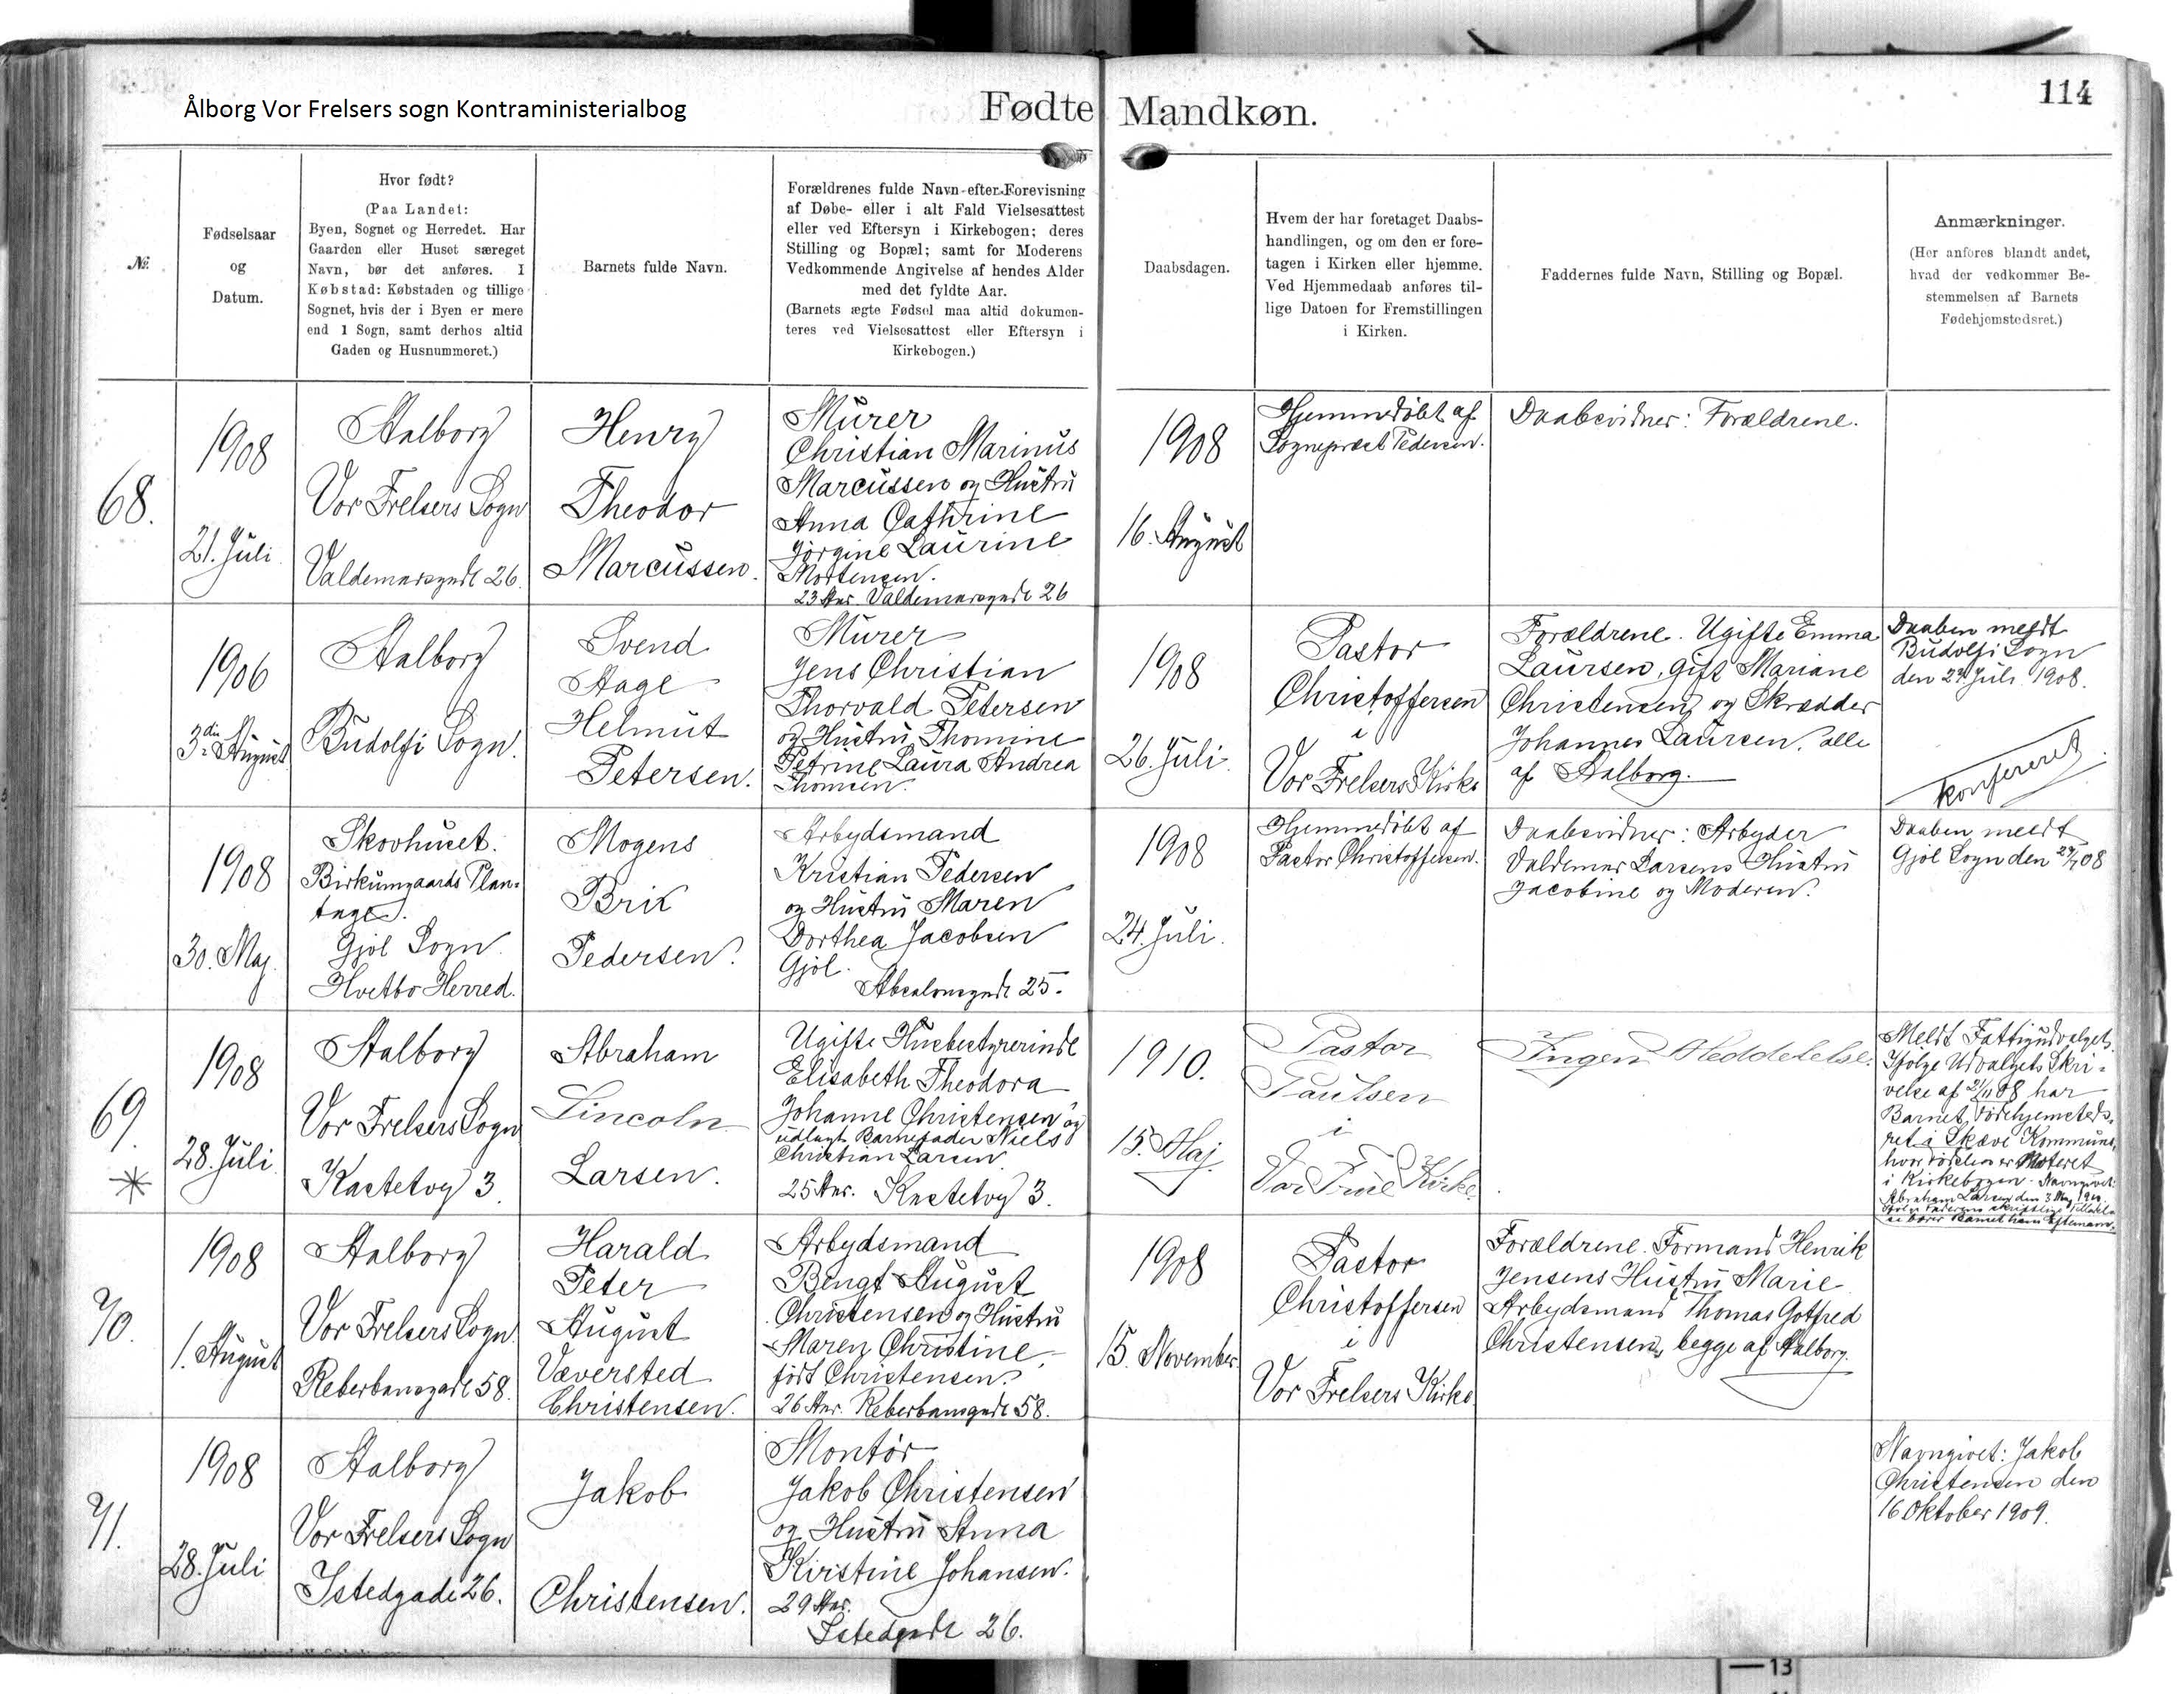 Ålborg Vor Frelsers sogn Kontraministerialbog
Fødte Mandkøn.
114
№
Fødselsaar
og
Datum.
Hvor født?
(Paa Landet:
Byen, Sognet og Herredet. Har
Gaarden eller Huset særeget
Navn, bør det anføres. I
Købstad: Købstaden og tillige
Sognet, hvis der i Byen er mere
end 1 Sogn, samt derhos altid
Gaden og Husnummeret.)
Barnets fulde Navn.
Forældrenes fulde Navn efter Forevisning
af Døbe- eller i alt Fald Vielsesattest
eller ved Eftersyn i Kirkebogen; deres
Stilling og Bopæl; samt for Moderens
Vedkommende Angivelse af hendes Alder
med det fyldte Aar.
(Barnets ægte Fødsel maa altid dokumen-
teres ved Vielsesattest eller Eftersyn i
Kirkebogen.)
Daabsdagen.
Hvem der har foretaget Daabs-
handlingen, og om den er fore-
tagen i Kirken eller hjemme.
Ved Hjemmedaab anføres til-
lige Datoen for Fremstillingen
i Kirken.
Faddernes fulde Navn, Stilling og Bopæl.
Anmærkninger.
(Her anføres blandt andet,
hvad der vedkommer Be-
stemmelsen af Barnets
Fødehjemstedsret.)
68.
1908
21. Juli
Aalborg
Vor Frelsers Sogn
Valdemarsgade 26.
Henry
Theodor
Marcussen.
Murer
Christian Marinus
Marcussen og Hustru
Anna Cathrine
Jørgine Laurine
Mortensen.
23 Aar. Valdemarsgade 26
1908
16. August
Hjemmedøbt af
Sognepræst Pedersen.
Daabsvidner: Forældrene.
1906
3die August
Aalborg
Budolfi Sogn.
Svend
Aage
Helmut
Petersen.
Murer
Jens Christian
Thorvald Petersen
og Hustru Thomine
Petrine Laura Andrea
Thomsen.
1908
26. Juli.
Pastor
Christoffersen
i
Vor Frelsers Kirke
Forældrene. Ugifte Emma
Laursen, gift Mariane
Christensen og Skrædder
Johannes Laursen, alle
af Aalborg.
Daaben meldt
Budolfi Sogn
den 27. Juli 1908.
konfereret
1908
30. Maj
Skovhuset.
Birkumgaards Plan-
tage.
Gjøl Sogn
Hvetbo Herred.
Mogens
Brik
Pedersen.
Arbydsmand
Kristian Pedersen
og Hustru Maren
Dorthea Jacobsen
Gjøl.
Absalonsgade 25.
1908
24. Juli.
Hjemmedøbt af
Pastor Christoffersen.
Daabsvidner: Arbyder
Valdemar Larsens Hustru
Jacobine og Moderen.
Daaben meldt
Gjøl Sogn den 24/7 08
69.
*
1908
28. Juli
Aalborg
Vor Frelsers Sogn
Kastetvej 3.
Abraham
Lincoln
Larsen.
Ugifte Husbestyrerinde
Elisabeth Theodora
Johanne Christensen og
udlagt Barnefader Niels
Christian Larsen
25 Aar. Kastetvej 3.
1910.
15. Maj.
Pastor
Paulsen
i
Vor Frue Kirke
Ingen Meddelelse.
Meldt Fattigudvalget.
Ifølge Udvalgets Skri-
velse af 21/11 08 har
Barnet Fødehjemsteds-
ret i Skæve Kommune,
hvor Fødslen er Noteret
i Kirkebogen. Navngivet:
Abraham Larsen den 3 Maj
Ifølge Faderens skriftlige Tilladel-
se bærer Barnet hans Efternavn.
70.
1908
1. August
Aalborg
Vor Frelsers Sogn
Reberbansgade 58.
Harald
Peter
August
Væversted
Christensen.
Arbydsmand
Bengt August
Christensen og Hustru
Maren Christine,
født Christensen.
26 Aar. Reberbansgade 58.
1908
15. November.
Pastor
Christoffersen
i
Vor Frelsers Kirke.
Forældrene. Formand Henrik
Jensens Hustru Marie
Arbydsmand Thomas Gotfred
Christensen, begge af Aalborg.
71.
1908
28. Juli
Aalborg
Vor Frelsers Sogn
Istedgade 26.
Jakob
Christensen.
Montør
Jakob Christensen
og Hustru Anna
Kirstine Johansen.
29 Aar.
Istedgade 26.
Navngivet: Jakob
Christensen den
16 Oktober 1909.
13